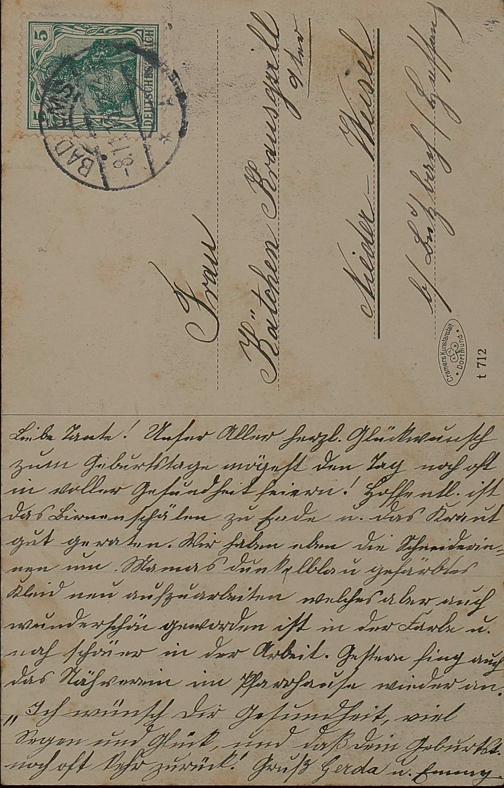 5 5
DEUTSCHES REICH
BAD EMS
-8.11.
Frau
Kätchen Krausgrill
Nieder-Weisel
b/ Butzbach (Hessen)
Cramers Kunstanstalt Dortmund
t 712
Liebe Tante! Unser Aller herzl. Glückwunsch
zum Geburtstage mögest den Tag noch oft
in voller Gesundheit feiern! Hoffentl. ist
das Birnenschälen zu Ende u. das Kraut
gut geraten. Wir haben eben die Schneiderin-
nen um Mamas dunkelblau gefärbtes
Kleid neu aufzuarbeiten welches aber auch
wunderschön geworden ist in der Farbe u.
noch schöner in der Arbeit. Gestern fing auch
das Nähverein im Pfarrhause wieder an,
„Ich wünsch Dir Gesundheit, viel
Segen und Glück, und daß dein Geburtst.
noch oft kehr zurück! Gruß Gerda u. Emmy.